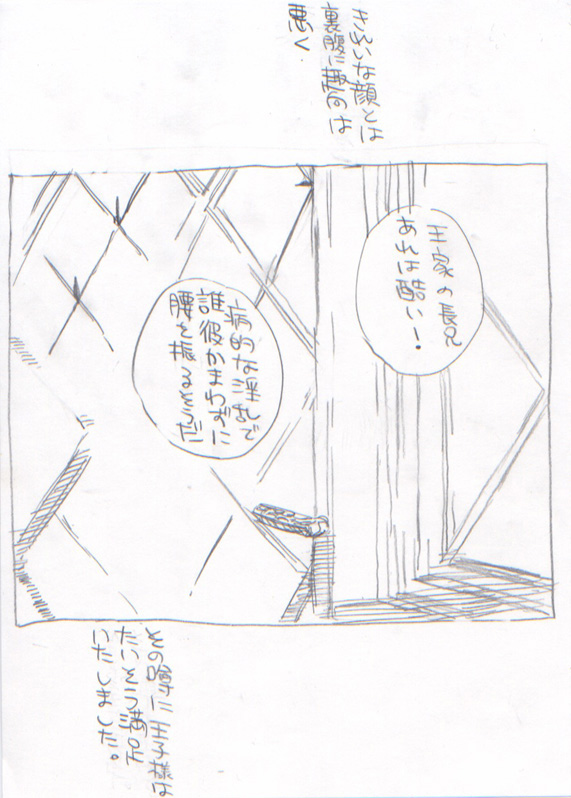 きれいな顔とは
裏腹に趣向は
悪く.
王家の長兄
あれは酷い!
病的な淫乱で
誰彼かまわずに
腰を振るそうだ
その噂に王子様は
たいそう満足
いたしました。